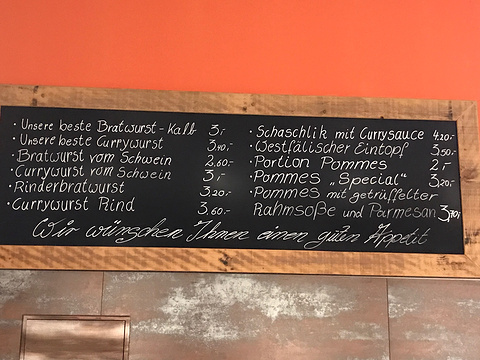 · Unsere beste Bratwurst - Kalb 3,-
· Unsere beste Currywurst 3,40,-
· Bratwurst vom Schwein 2,60,-
· Currywurst vom Schwein 3,-
· Rinderbratwurst 3,20,-
· Currywurst Rind 3,60,-
· Schaschlik mit Currysauce 4,20,-
· Westfälischer Eintopf 3,50,-
· Portion Pommes 2,-
· Pommes „Special“ 3,20,-
· Pommes mit getrüffelter
Rahmsoße und Parmesan
Wir wünschen Ihnen einen guten Appetit